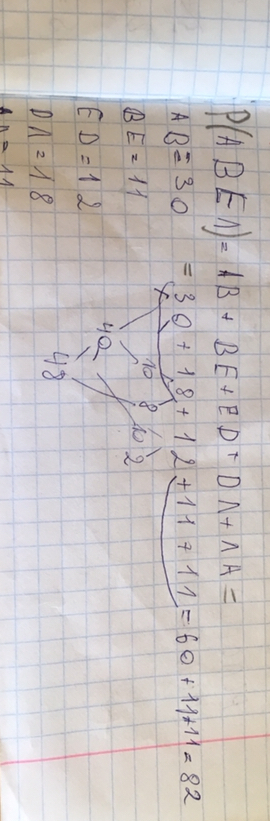 P(ABEΛ) = AB + BE + ED + DΛ + ΛA =
AB = 30 = 30 + 18 + 12 + 11 + 11 = 60 + 11 + 11 = 82
BE = 11
10 8 10 2
ED = 12 40
DΛ = 18 48
ΛA = 11